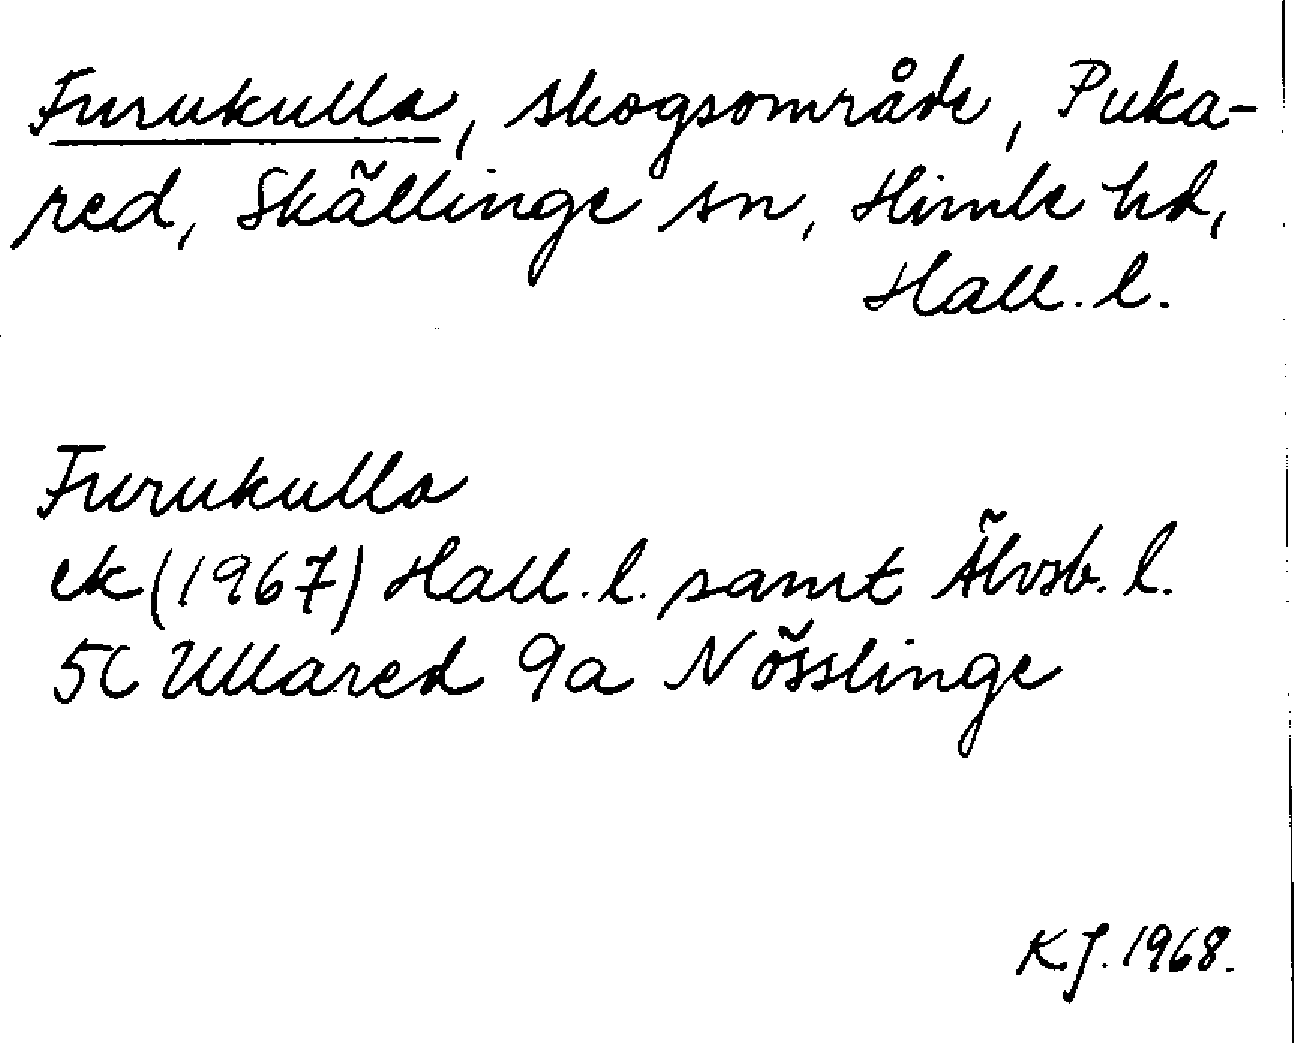 Furukulla, skogsområde, Puka-
red, Skällinge sn, Himle hd,
Hall. l.
Furukulla
ek (1967) Hall. l. samt Älvsb. l.
5C Ullared 9a Nösslinge
KJ. 1968.